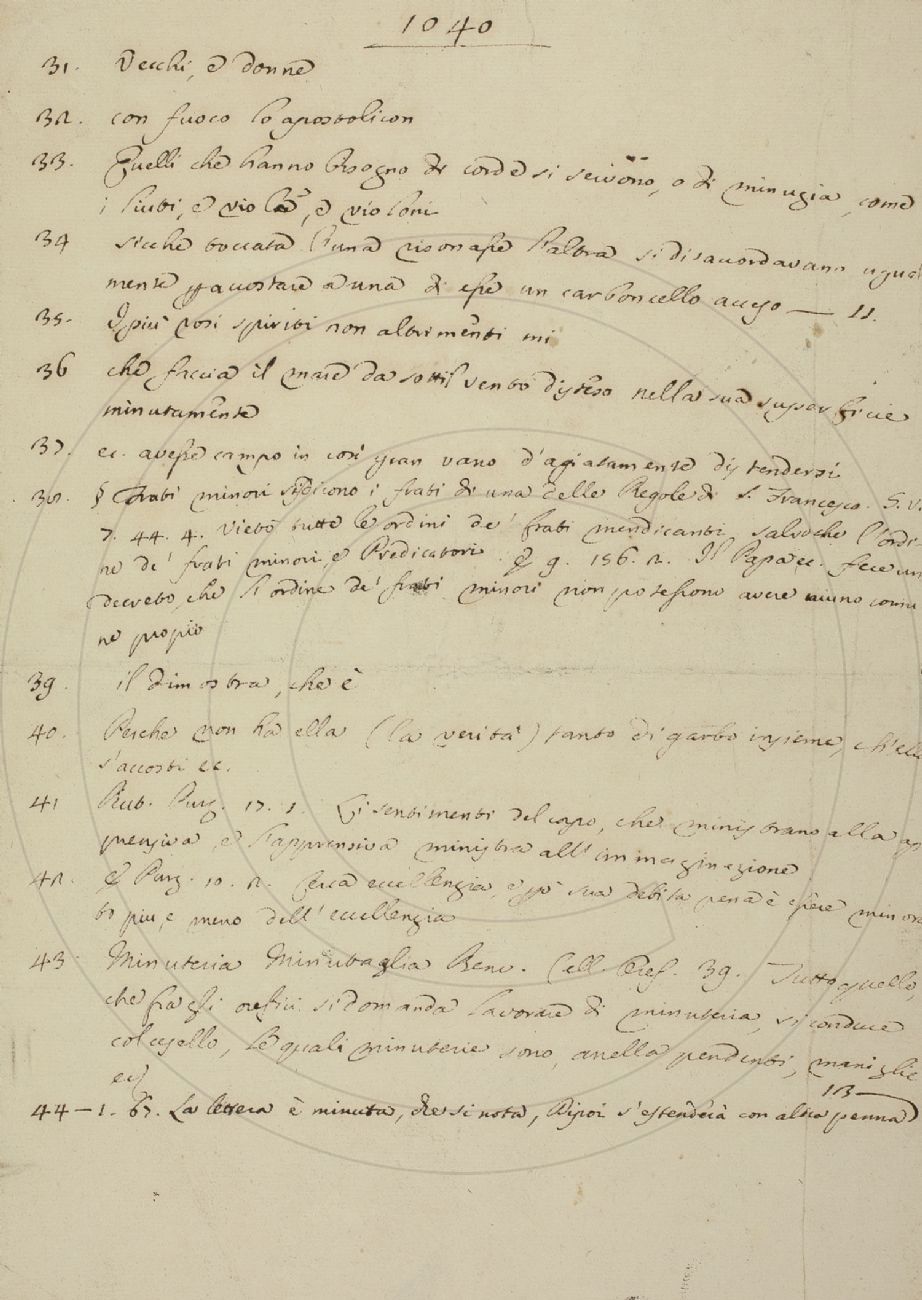 1040
31. Vecchi, e donne
32. con fuoco lo apostolicon
33. Quelli che hanno bisogno di corde si servono, o di minugia, come
i liuti, e viole, e violoni
34 sicche toccata l'una risonasse l'altra si disaccordavano ugual
mente accostare a una di esse un carboncello acceso — 11.
35. E più così spiriti non altrimenti mi
36 che faccia il mare da sottil vento disteso nella sua superficie
minutamente
37. ec. avesse campo in così gran vano d'agiatamente distendersi
38. § Frati minori si dicono i frati di una delle Regole di S. Francesco. G. V.
7. 44. 4. Vietò tutte le ordini de' frati mendicanti salvoche l'ordi
ne de' frati minori, e Predicatori. E 9. 156. 2. Il Papa ec. fece un
decreto, che l'ordine de' frati minori non potessono avere niuno comu
ne propio
39. il dimostra, che è
40. Perche non ha ella (la verità) tanto di garbo insieme, ch'ella
s'accosti ec.
41 But. Purg. 17. 1. Li sentimenti del capo, che ministrano alla ap
prensiva, e l'apprensiva ministra all'immaginazione
42. E Purg. 10. 2. cerca eccellenzia, e sua debita pena è essere minora
to più, e meno dell'eccellenzia
43 Minuteria Minutaglia Benv. Cell. Oref. 39. Tutto quello,
che fra gli orefici si domanda lavorare di minuteria, si conduce
col cesello, le quali minuterie sono, anella pendenti, maniglie
ec)
13
44 — 1. 67. La lettera è minuta, che si nota, Di poi s'estenderà con altra penna